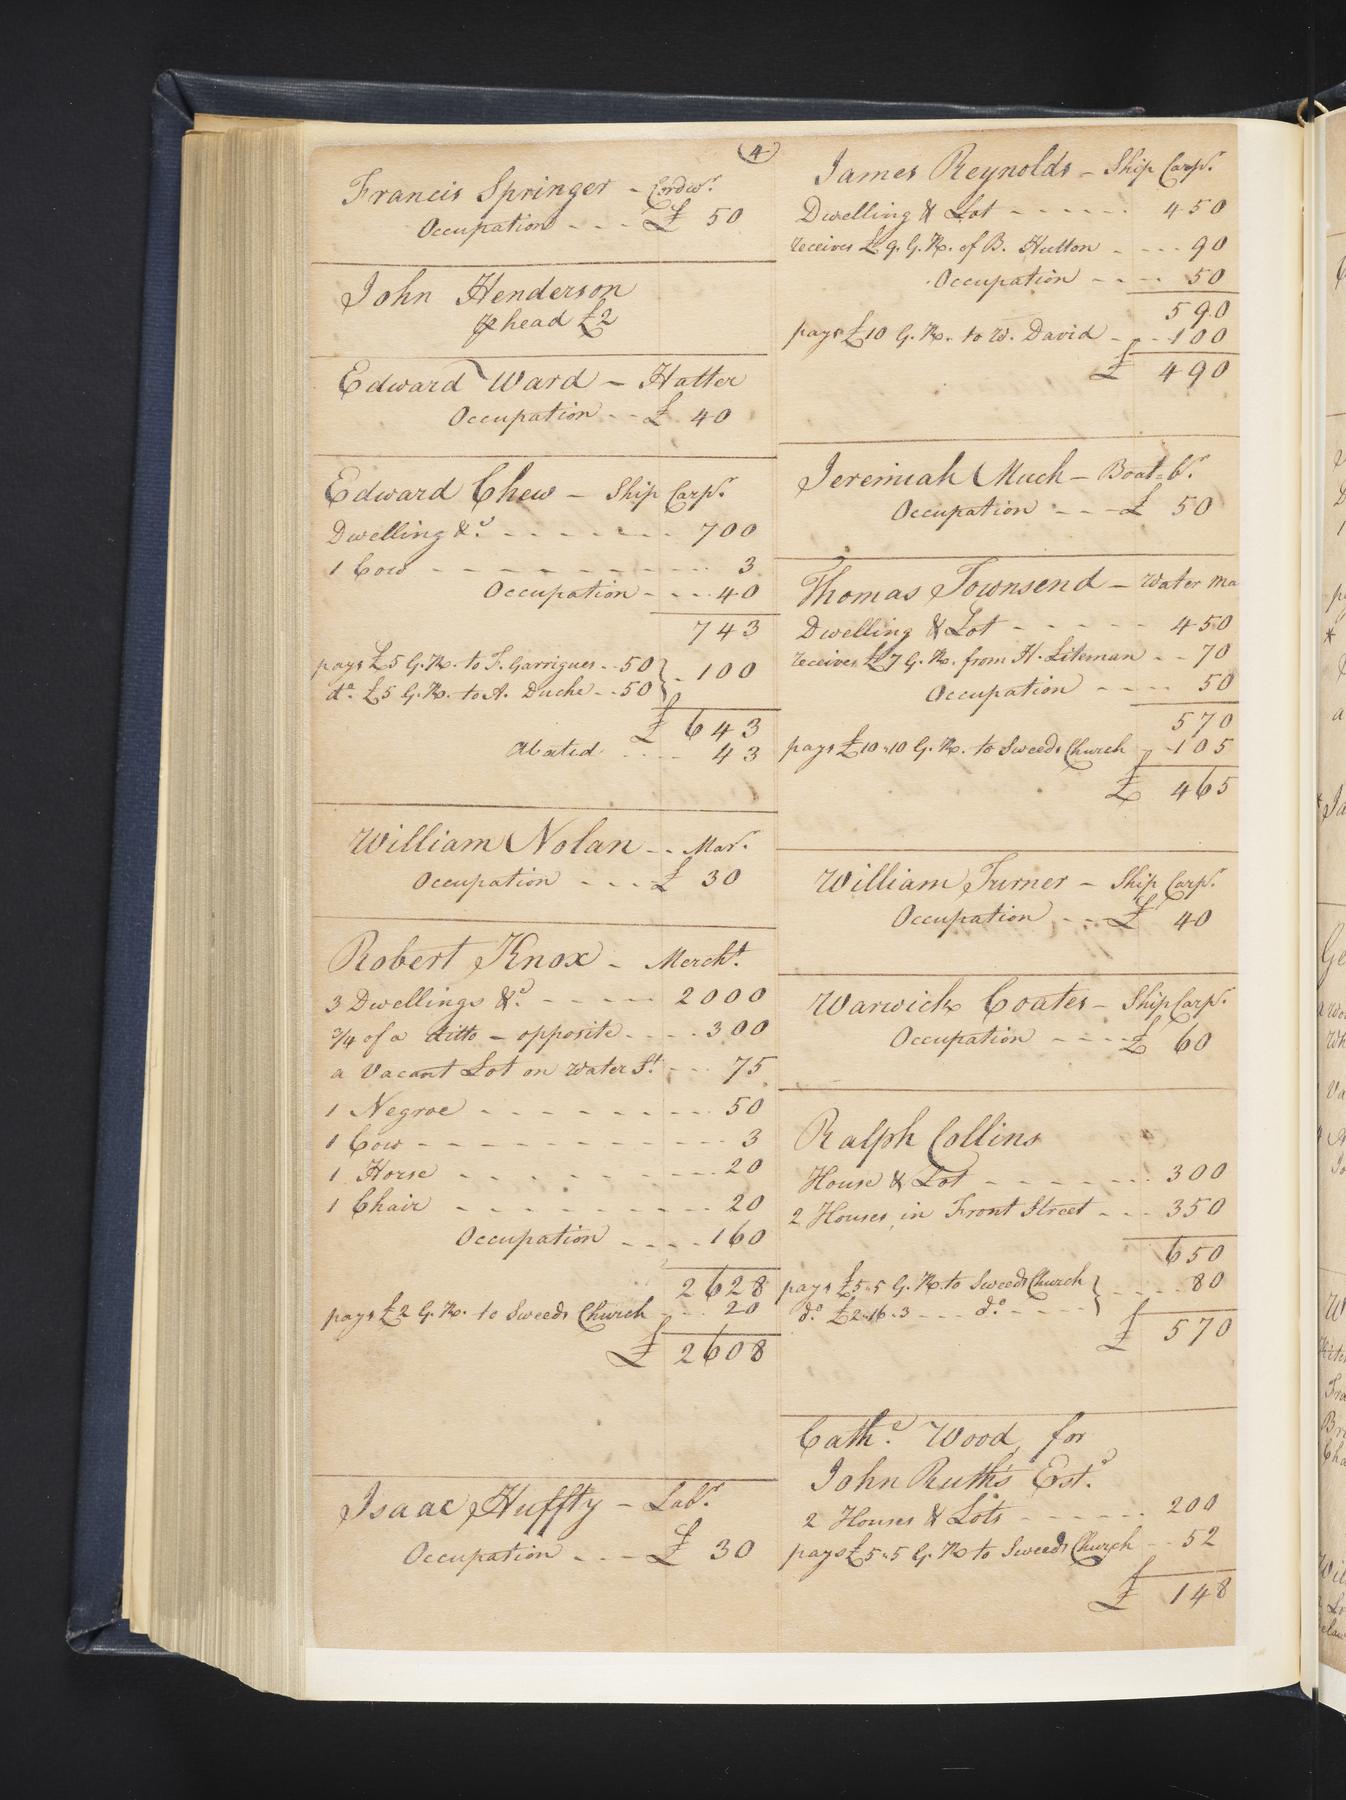 4
Francis Springer - Cordwr.
Occupation - - - £ 50
John Henderson
℘ head £2
Edward Ward - Hatter
Occupation - - £ 40
Edward Chew - Ship Carpr.
Dwelling &c. - - - - - - 700
1 Cow - - - - - - - - - 3
Occupation - - - 40
743
pays £5 G. R. to F. Garrigues - - 50 } - 100
do. £5 G. R. to A. Duche - - 50
£ 643
Abated - - - 43
William Nolan - - Marr.
Occupation - - - £ 30
Robert Knox - Mercht.
3 Dwellings &c. - - - - 2000
3/4 of a ditto - opposite - - - - 300
a Vacant Lot on Water St. - - - 75
1 Negroe - - - - - - - - 50
1 Cow - - - - - - - - - - 3
1 Horse - - - - - - - - 20
1 Chair - - - - - - - - 20
Occupation - - - - 160
2628
pays £2 G. R. to Sweeds Church - - - 20
£ 2608
Isaac Huffty - Labr.
Occupation - - - £ 30
James Reynolds - Ship Carpr.
Dwelling & Lot - - - - - - 450
receives £9. G. R. of B. Hutton - - - - 90
Occupation - - - - 50
590
pays £10 G. R. to W. David - - - 100
£ 490
Jeremiah Much - Boat=br.
Occupation - - - £ 50
Thomas Townsend - Water ma
Dwelling & Lot - - - - - 450
receives £7 G. R. from H. Liteman - - 70
Occupation - - - - 50
570
pays £10"10 G. R. to Sweeds Church - 105
£ 465
William Turner - Ship Carpr.
Occupation - - - £ 40
Warwick Coates - Ship Carpr.
Occupation - - - - £ 60
Ralph Collins
House & Lot - - - - - - 300
2 Houses in Front Street - - - 350
650
pays £5"5 G. R. to Sweeds Church } - - - - 80
do. £2"16"3 - - - do. - - - -
£ 570
Cathe. Wood, for
John Ruth's Estd.
2 Houses & Lots - - - - - - 200
pays £5"5 G. R. to Sweeds Church - - 52
£ 148